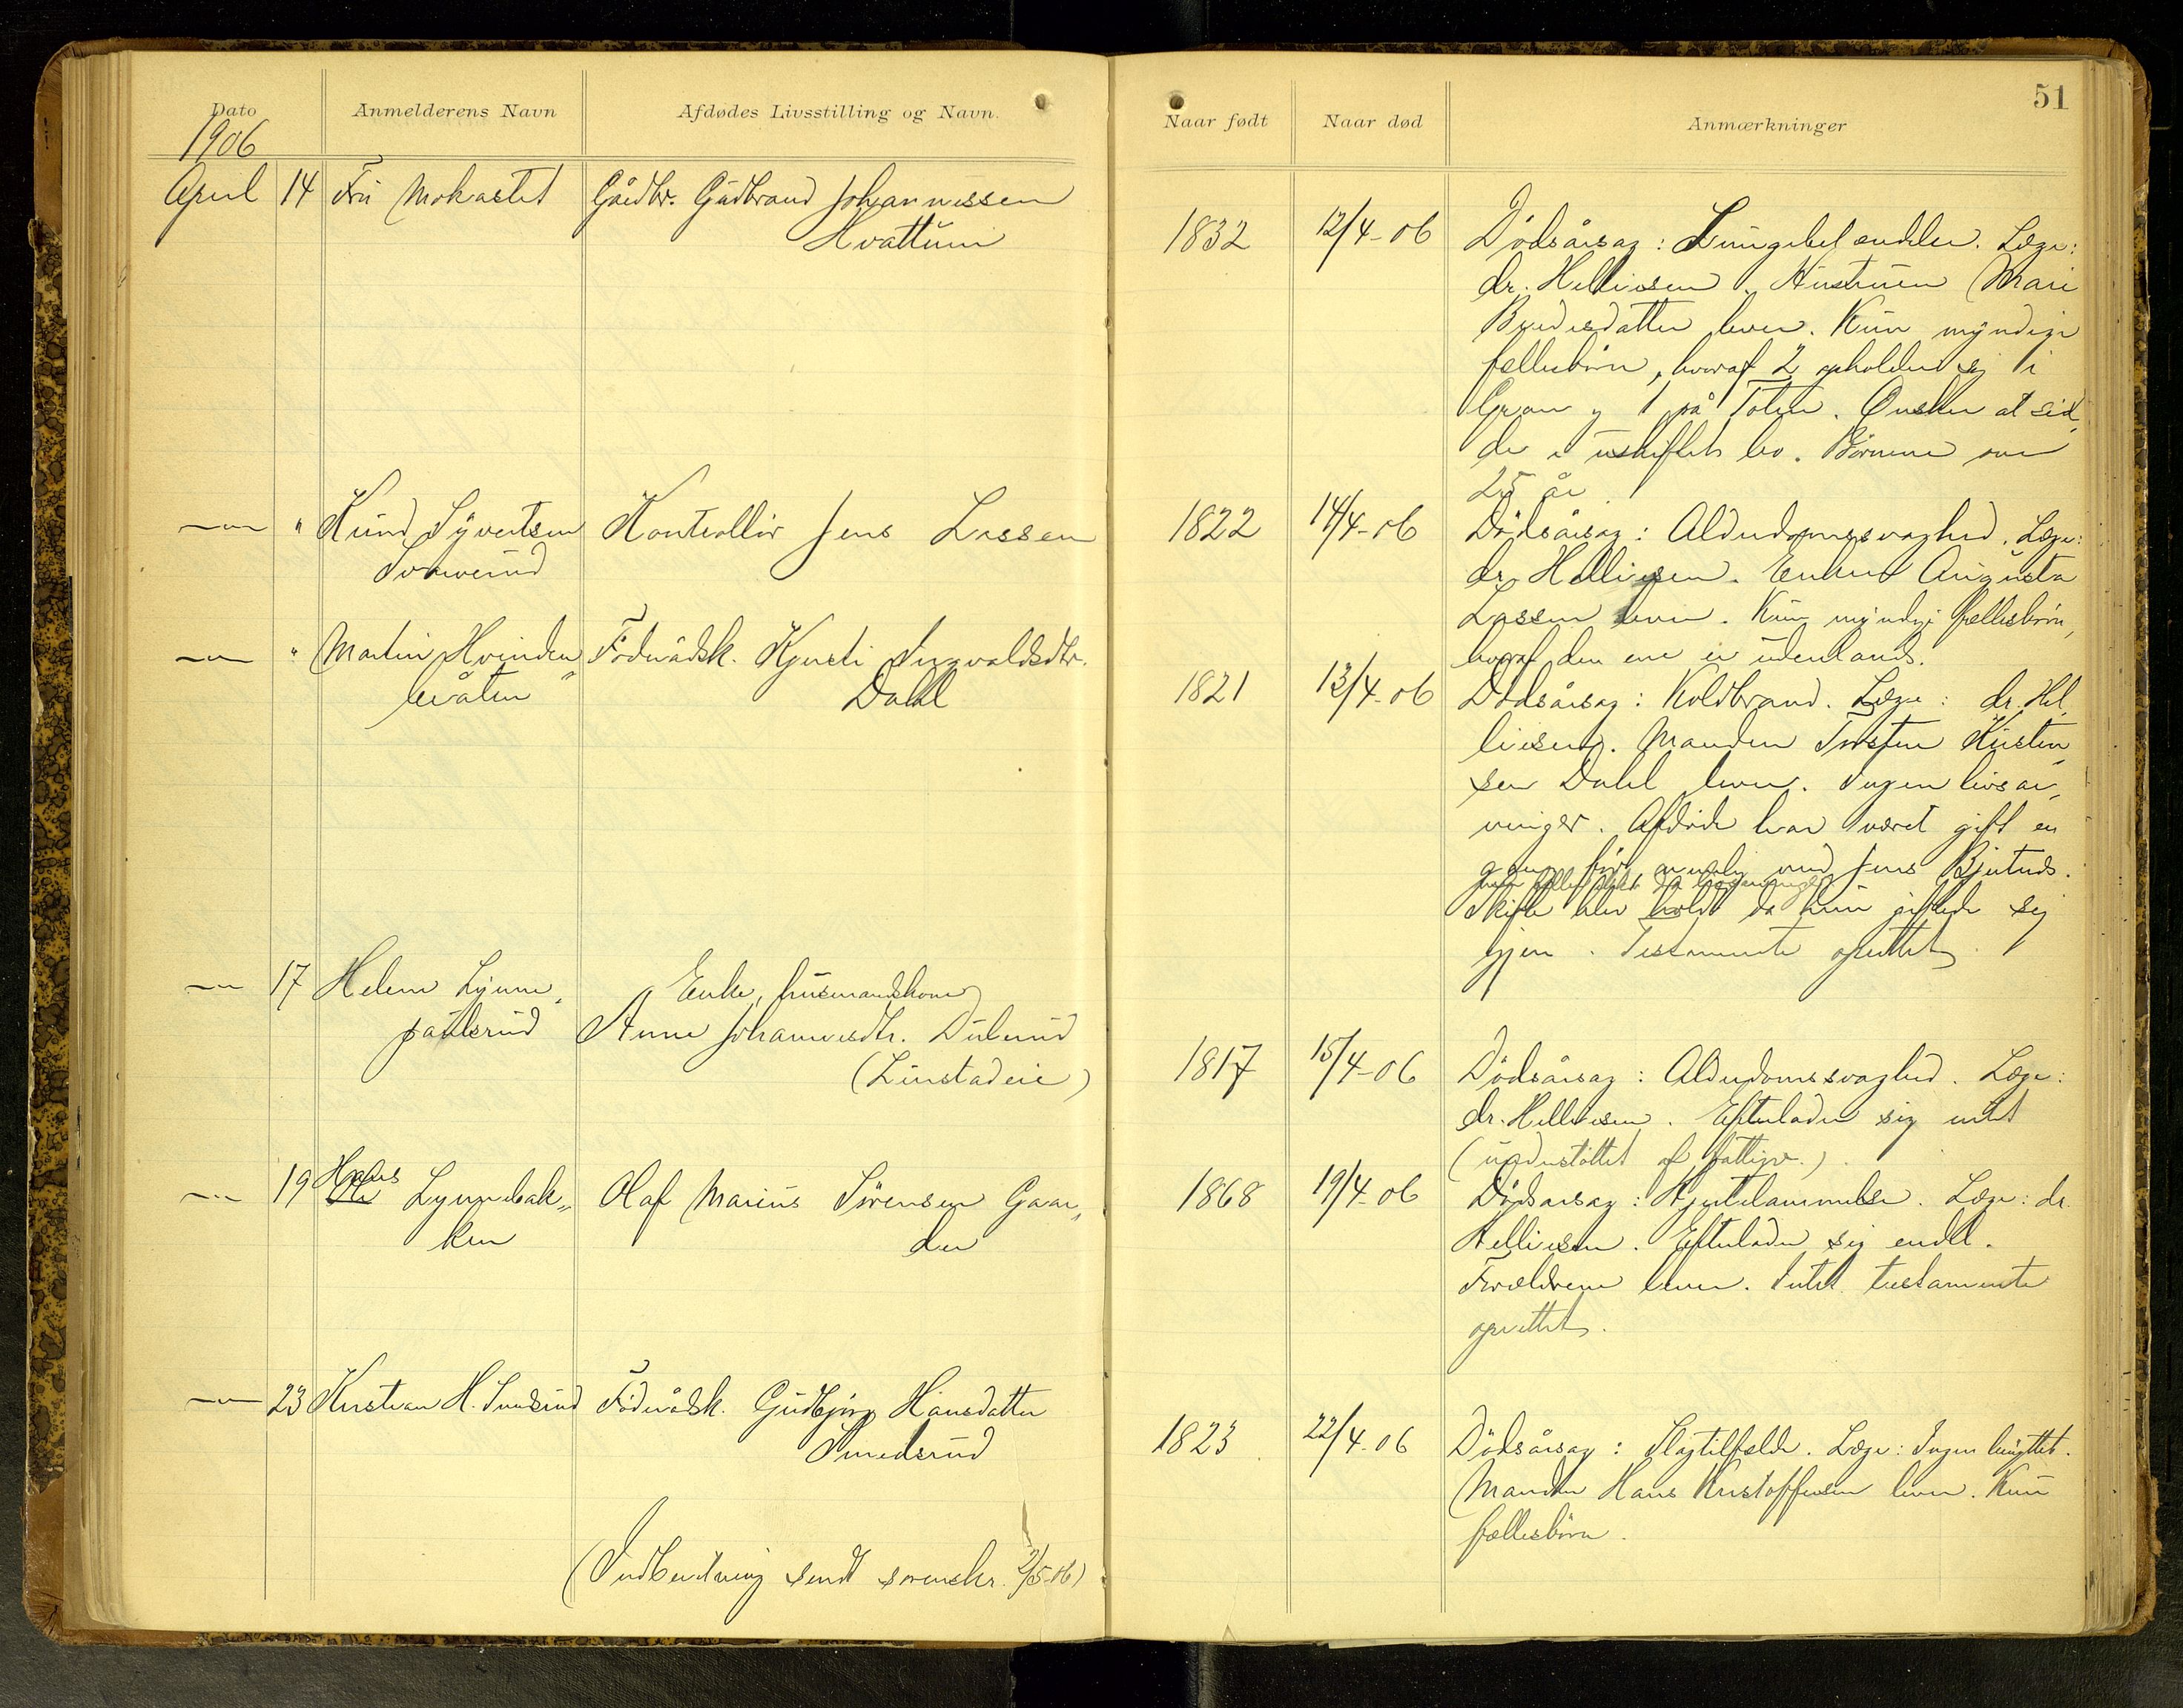 51
Dato
Anmelderens Navn
Afdødes Livsstilling og Navn.
Naar født
Naar død
Anmærkninger
1906
April 14 Fru Mokastet Gårdbr. Gudbrand Johannessen
Hvattum
1832 12/4-06 Dödsårsag: Lungebetændelse. Læge:
dr. Helliesen. Hustruen Mari
datter lever. Kun myndige
fællesbörn, hvoraf 2 opholder sig i
Gran og 1 på Toten. Önsker at sid-
de i uskiftet bo. Börnene over
25 år.
" Knud Syvertsen Kontrollör Jens Lassen
1822 14/4-06 Dödsårsag: Alderdomssvaghed. Læge:
dr. Helliesen. Enken Augusta
Lassen lever. Kun myndige fællesbörn,
hvoraf den ene er udenlands.
" Martin Hvinden Föderådsk. Kjersti Ingvaldsdtr.
bråten Dahl
1821 13/4-06 Dödsårsag: Koldbrand. Læge: dr. Hel-
liesen. Manden Torsten Kristen-
sen Dahl lever. Ingen livsar-
vinger. Afdöde har været gift en
gang för nemlig med Jens
Skifte blev holdt da hun giftede sig
igjen. Testamente oprettet.
17 Helene Lynne Enke, husmandskone
paulsrud Anne Johannesdtr. Dulerud
(Linstadeie)
1817 15/4-06 Dödsårsag: Alderdomssvaghed. Læge:
dr. Helliesen. Efterlader sig intet
(understöttet af fattigv.)
19 Hans Lynnebak- Olaf Marius Sörensen Gaar-
ken der
1868 19/4-06 Dödsårsag: Hjertelammelse. Læge: dr.
Helliesen. Efterlader sig endel.
Forældrene lever. Intet testamente
oprettet.
23 Kristian H. Smedsrud Föderådsk. Gudbjörg Hansdatter
Smedsrud
1823 22/4-06 Dödsårsag: Slagtilfælde. Læge: Ingen benyttet.
Manden Hans Kristoffersen lever. Kun
fællesbörn.
(Indberetning sendt sorenskr. 2/5-06)